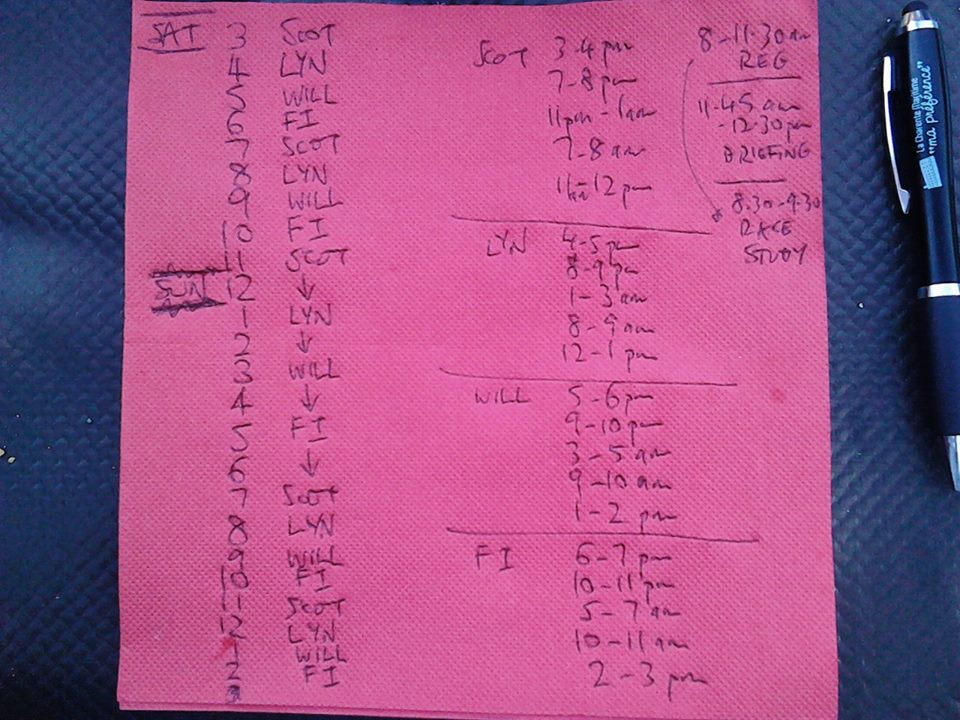 SAT 3 SCOT
4 LYN
5 WILL
6 FI
7 SCOT
8 LYN
9 WILL
10 FI
11 SCOT
SUN 12 ↓
1 LYN
2 ↓
3 WILL
4 ↓
5 FI
6 ↓
7 SCOT
8 LYN
9 WILL
10 FI
11 SCOT
12 LYN
1 WILL
2 FI
3
SCOT 3-4 pm
7-8 pm
11pm - 1am
7-8 am
11am-12 pm
LYN 4-5 pm
8-9 pm
1-3 am
8-9 am
12-1 pm
WILL 5-6 pm
9-10 pm
3-5 am
9-10 am
1-2 pm
FI 6-7 pm
10-11 pm
5-7 am
10-11 am
2-3 pm
8-11.30am
REG
11-45 am
-12.30pm
BRIEFING
8.30-9.30
RACE
STUDY
La Charente Maritime
"ma préférence"